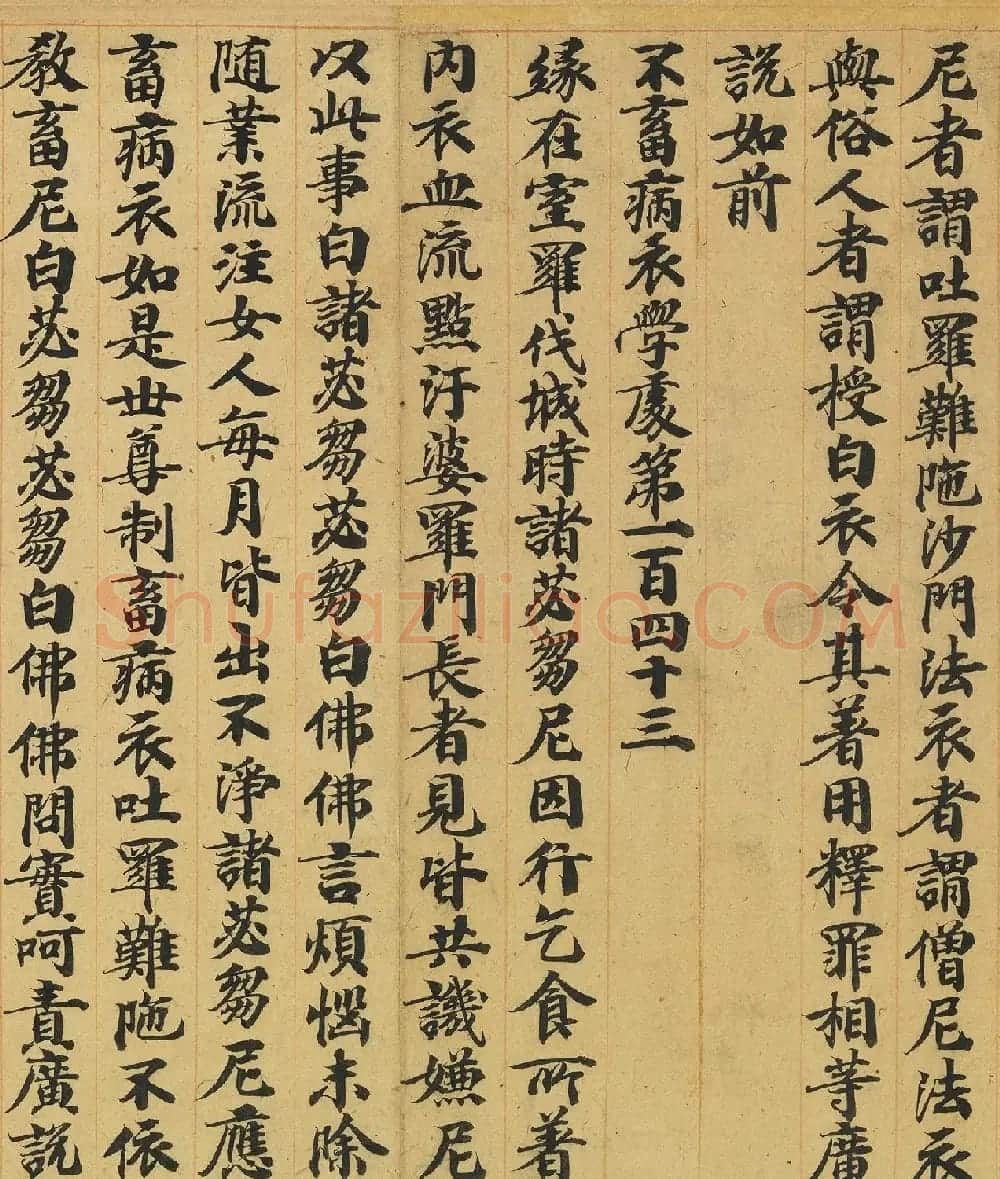 尼者謂吐羅難陁沙門法衣者謂僧尼法衣
與俗人者謂授白衣令其著用釋罪相等廣
說如前
不畜病衣學處第一百四十三
緣在室羅伐城時諸苾芻尼因行乞食所著
內衣血流點汙婆羅門長者見皆共譏嫌尼
以此事白諸苾芻苾芻白佛佛言煩惱未除
随業流注女人每月皆出不淨諸苾芻尼應
畜病衣如是世尊制畜病衣吐羅難陁不依
教畜尼白苾芻苾芻白佛佛問實呵責廣說
Shufaziliao.COM